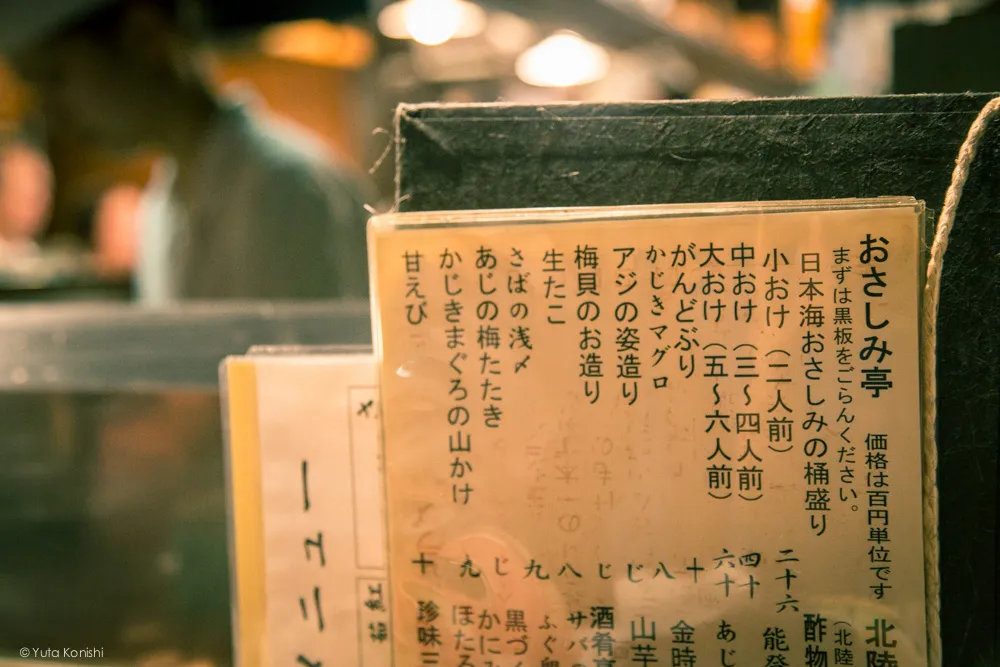 おさしみ亭 価格は百円単位です
まずは黒板をごらんください。
日本海おさしみの桶盛り
小おけ（二人前） 二十六
中おけ（三〜四人前） 四十
大おけ（五〜六人前） 六十
がんどぶり 十
かじきマグロ 八
アジの姿造り じ
梅貝のお造り じ
生たこ 八
さばの浅〆 九
あじの梅たたき じ
かじきまぐろの山かけ 九
甘えび 十
北陸
（北陸
酢物
能登
あじ
金時
山芋
酒肴亭
サバの
ふぐ卵
黒づく
かにみ
ほたる
珍味三
メニュー
©Yuta Konishi